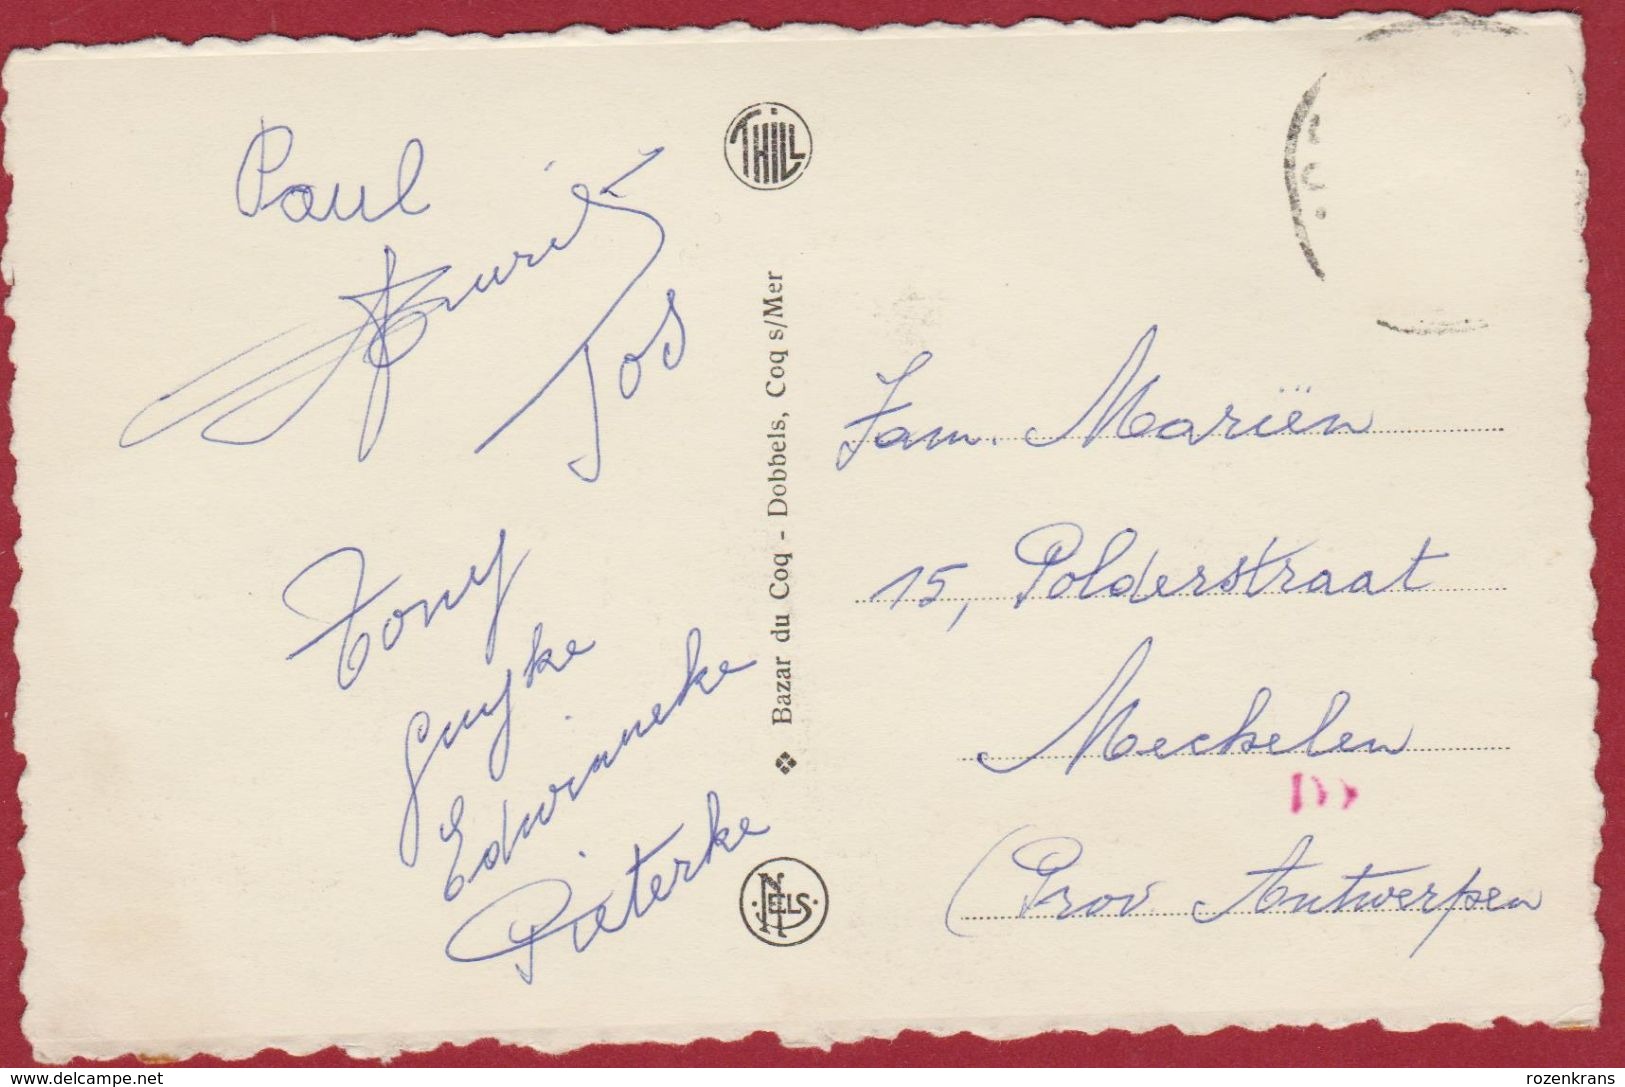 Paul
Jos
Tony
Guyke
Edwinneke
Pieterke
THILL
Bazar du Coq - Dobbels, Coq s/Mer
NELS
Fam. Mariën
15, Polderstraat
Mechelen
(Prov Antwerpen
www.delcampe.net
rozenkrans